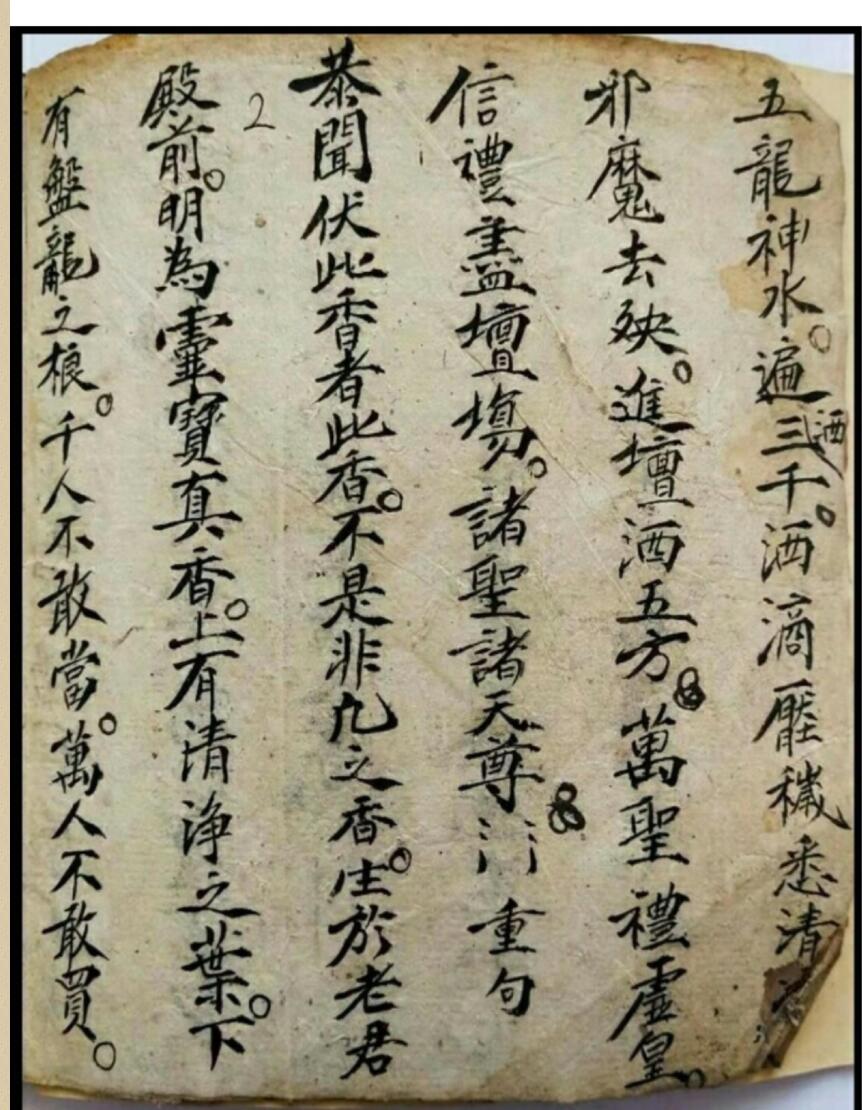 五龍神水。遍洒三千。洒滴壓穢悉清
邪魔去殃。進壇洒五方。萬聖禮虛皇。
信禮盡壇塲。諸聖諸天尊 重句
恭聞伏此香者此香。不是非凢之香。生於老君
2
殿前。明為靈寶真香。上有清浄之葉。下
有盤龍之根。千人不敢當。萬人不敢買。